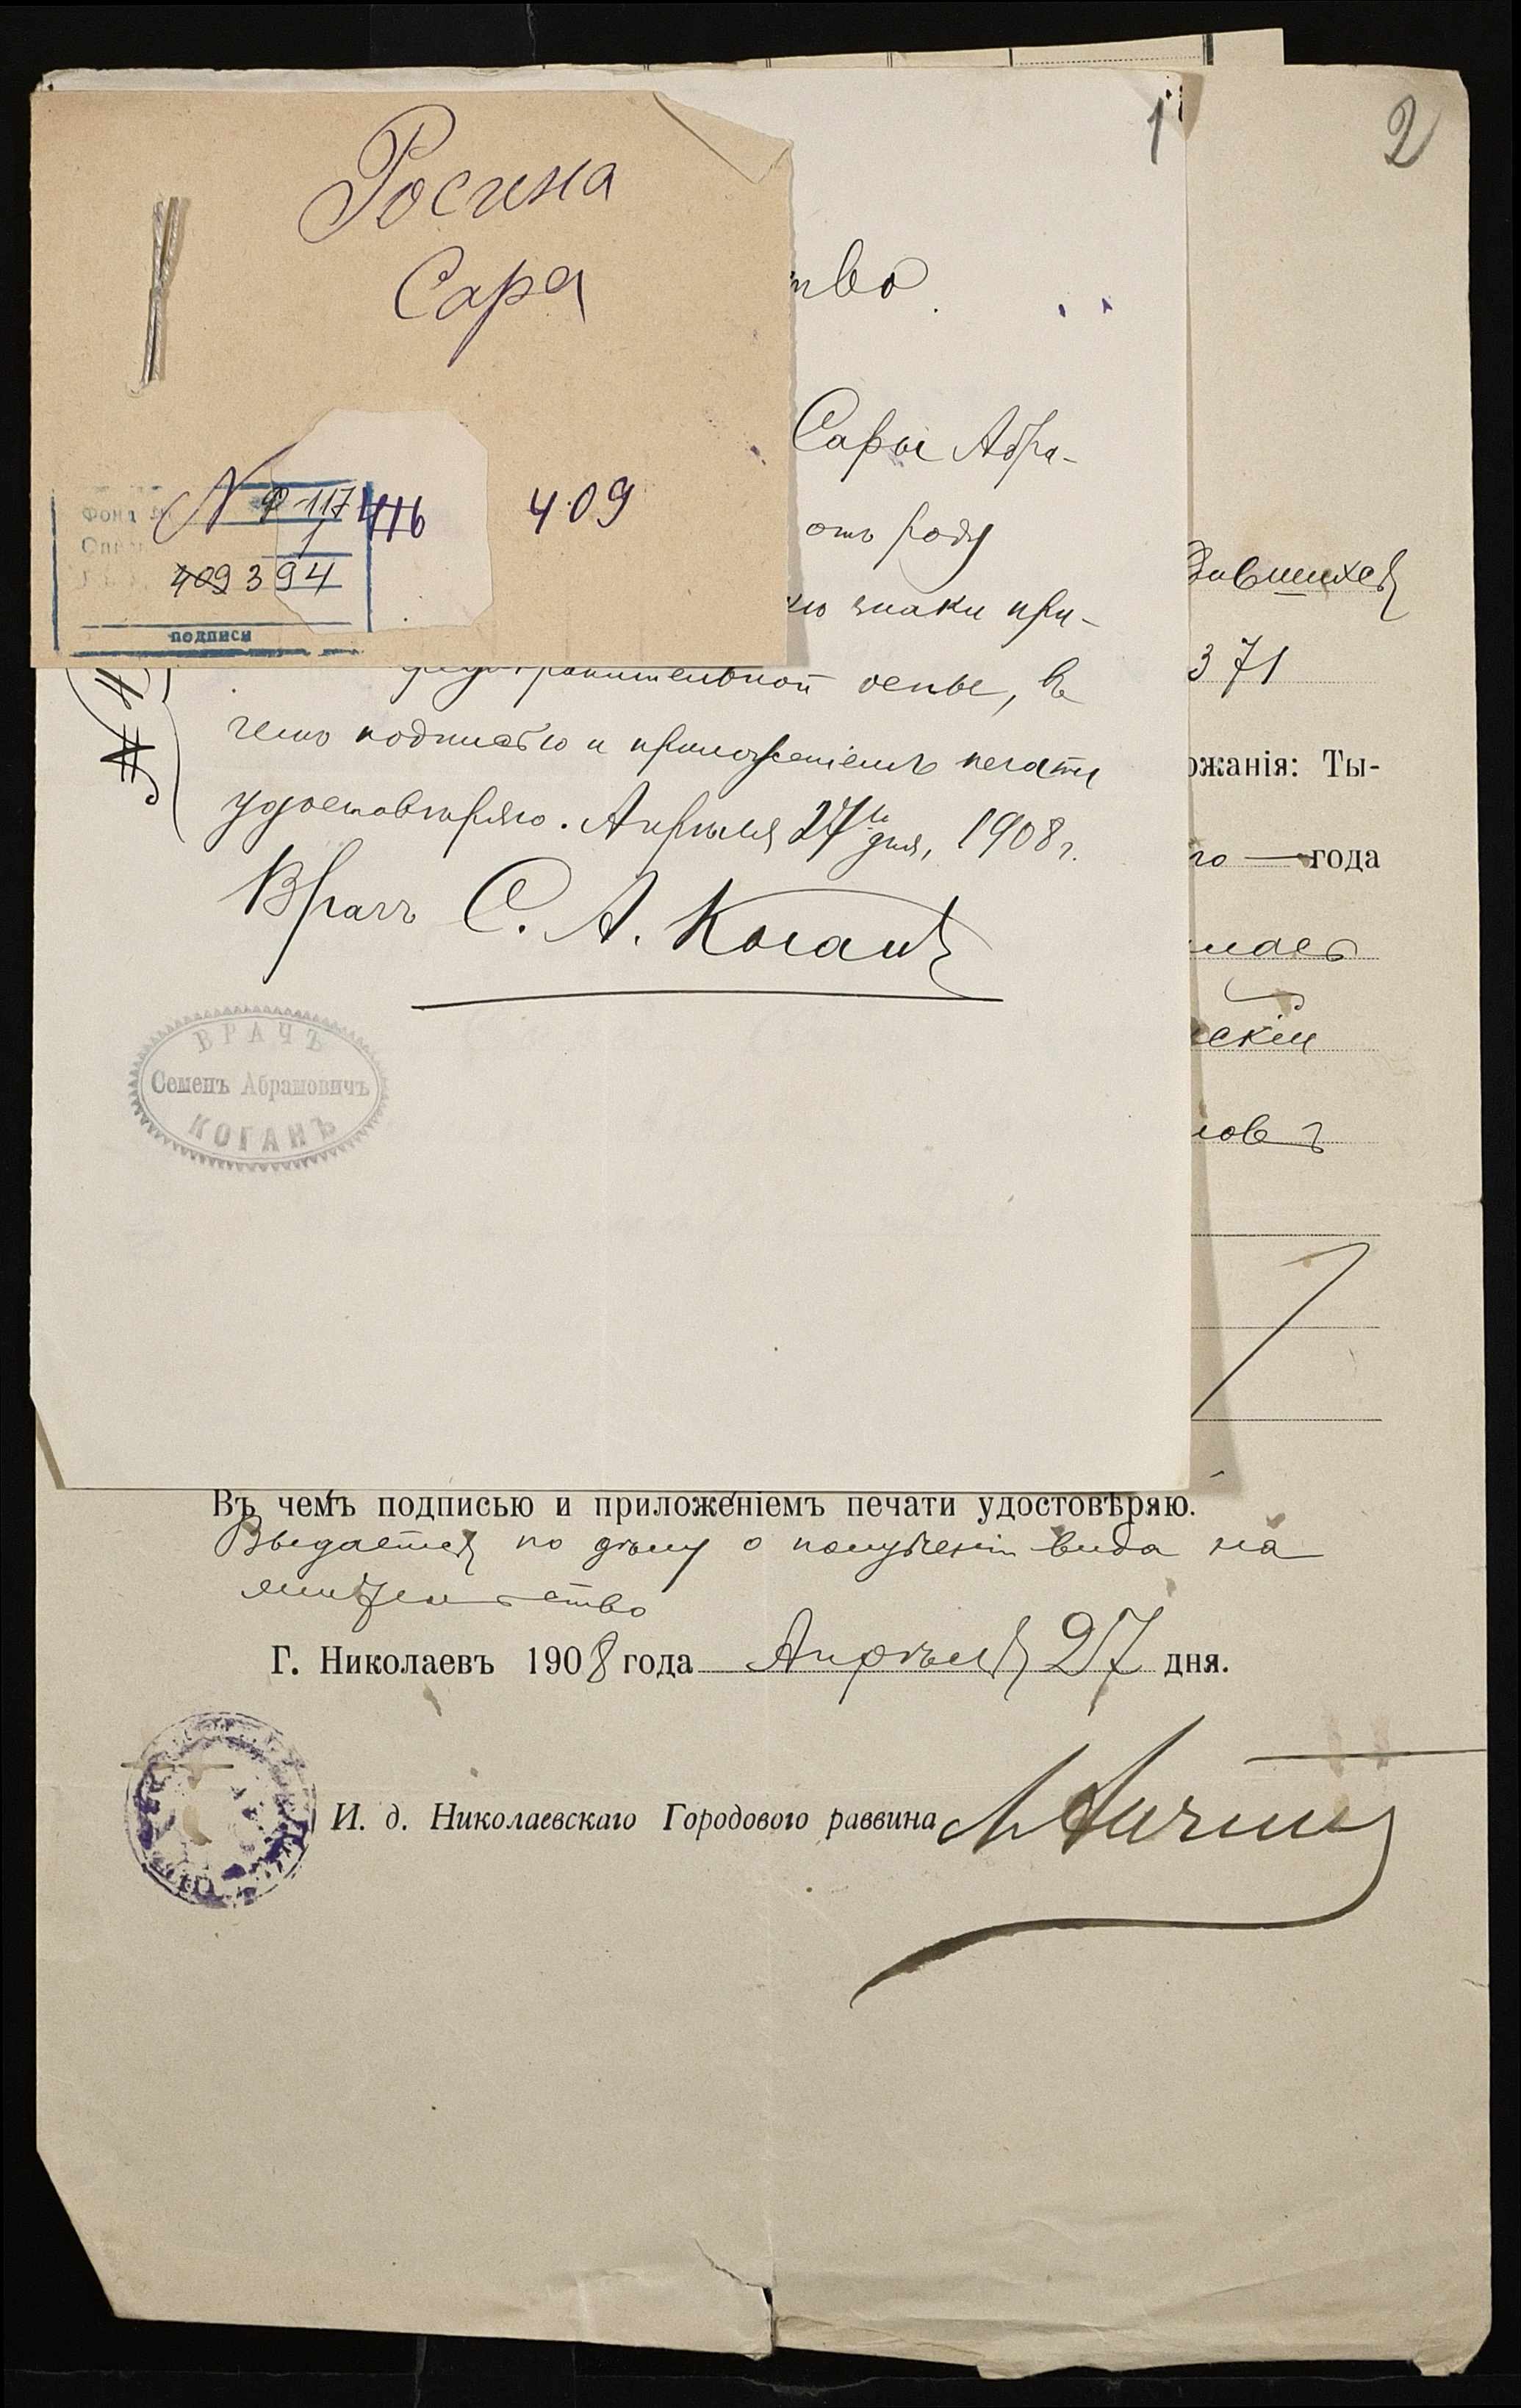 Росина
Сара
№ 416 409
Ф 117
1
409 394
подписи
1
тво.
Сары Абра-
отъ роду
знаки при-
предохранительной оспы, въ
чемъ подписью и приложеніемъ печати
удостовѣряю. Апрѣля 27го дня, 1908 г.
Врачъ С. А. Коганъ
ВРАЧЪ
Семенъ Абрамовичъ
КОГАНЪ
2
371
ожанія: Ты-
го — года
скій
Въ чемъ подписью и приложеніемъ печати удостовѣряю.
Выдается по дѣлу о полученіи вида на
жительство
Г. Николаевъ 1908 года Апрѣля 27 дня.
И. д. Николаевскаго Городового раввина